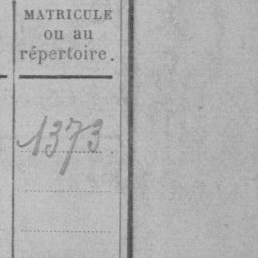 MATRICULE
ou au
répertoire.
1373